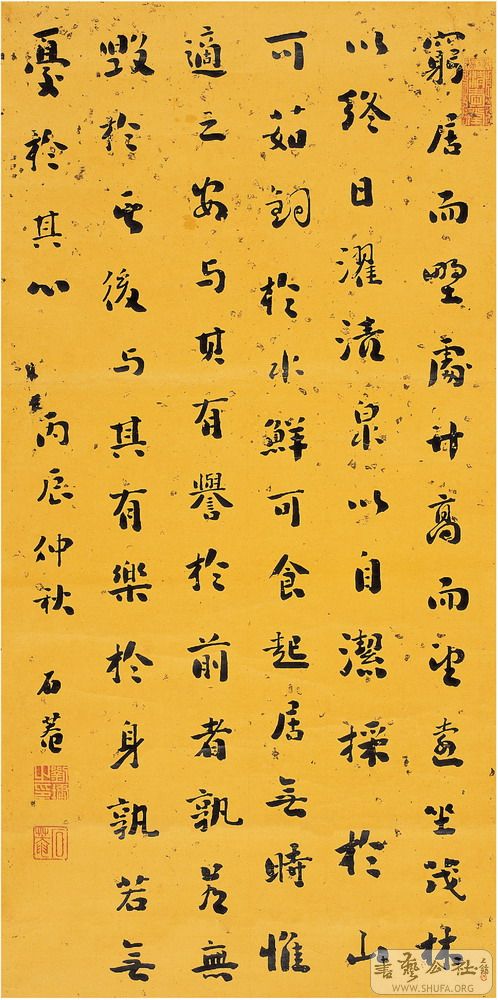 窮居而野處升高而望遠坐茂林
以終日濯清泉以自潔採於山
可茹釣於水鮮可食起居無時惟
適之安与其有譽於前者孰若無
毀於其後与其有樂於身孰若無
憂於其心
丙辰仲秋 石菴
書藝公社
WWW.SHUFA.ORG